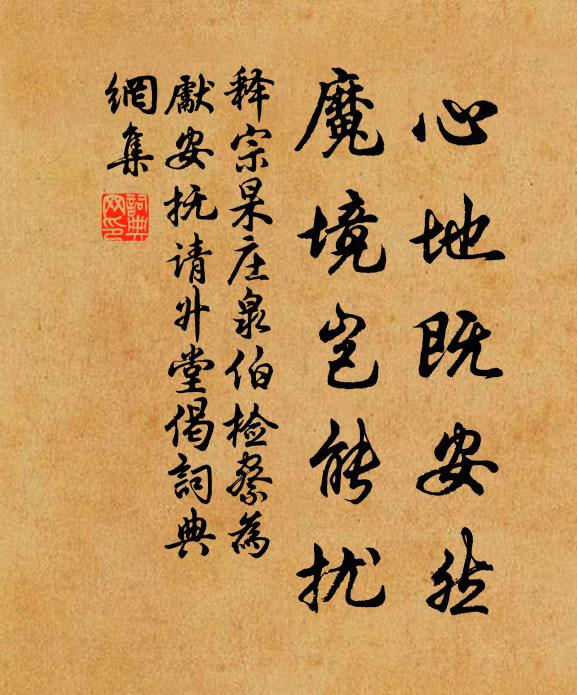 心地既安然
魔境岂能扰
释宗杲庄泉伯检察為
献安抚请升堂偈詞典
網集
詞典
网印